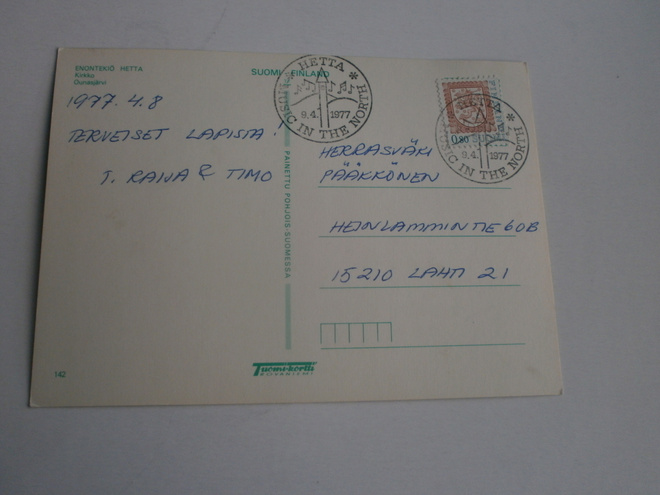 ENONTEKIÖ HETTA
Kirkko
Ounasjärvi
SUOMI - FINLAND
1977.4.8
TERVEISET LAPISTA!
T. RAIJA & TIMO
HETTA
MUSIC IN THE NORTH
9.4. 1977
0,80
HETTA
MUSIC IN THE NORTH
9.4. 1977
HERRASVÄKI
PÄÄKKÖNEN
HEINLAMMINTIE 60B
15210 LAHTI 21
PAINETTU POHJOIS-SUOMESSA
142
Tuomi-kortti
ROVANIEMI